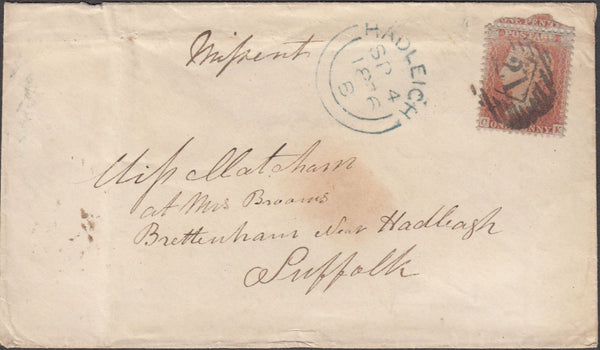 Missent
HADLEICH
SP 4
1856
B
ONE PENNY
POSTAGE
ONE PENNY
Miss Matcham
at Mrs Brooms
Brettenham Near Hadleagh
Suffolk